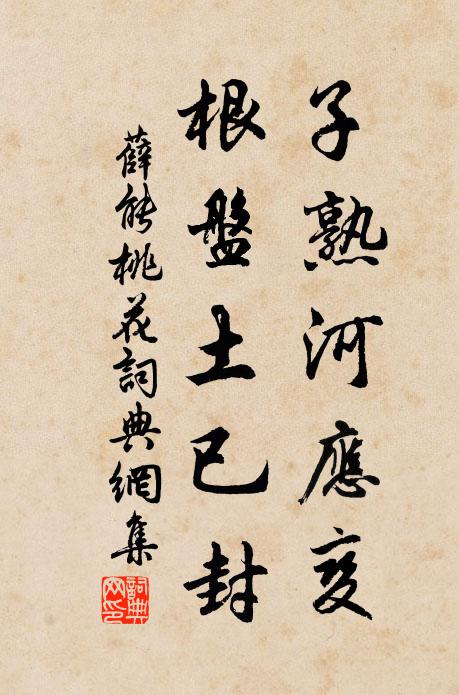 子熟河應變
根盤土已封
薛能桃花詞典網集
詞典網印